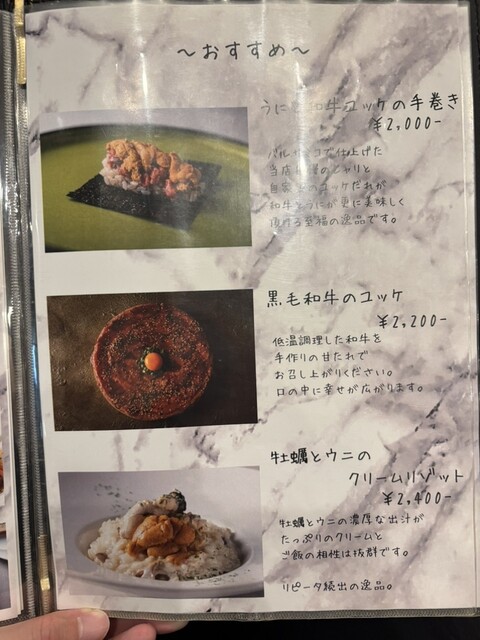 ～おすすめ～
うにと和牛ユッケの手巻き
¥2,000-
バルサミコで仕上げた
当店自慢のシャリと
自家製のユッケだれが
和牛とうにが更に美味しく
頂ける至福の逸品です。
黒毛和牛のユッケ
¥2,200-
低温調理した和牛を
手作りの甘たれで
お召し上がりください。
口の中に幸せが広がります。
牡蠣とウニの
クリームリゾット
¥2,400-
牡蠣とウニの濃厚な出汁が
たっぷりのクリームと
ご飯の相性は抜群です。
リピータ続出の逸品。